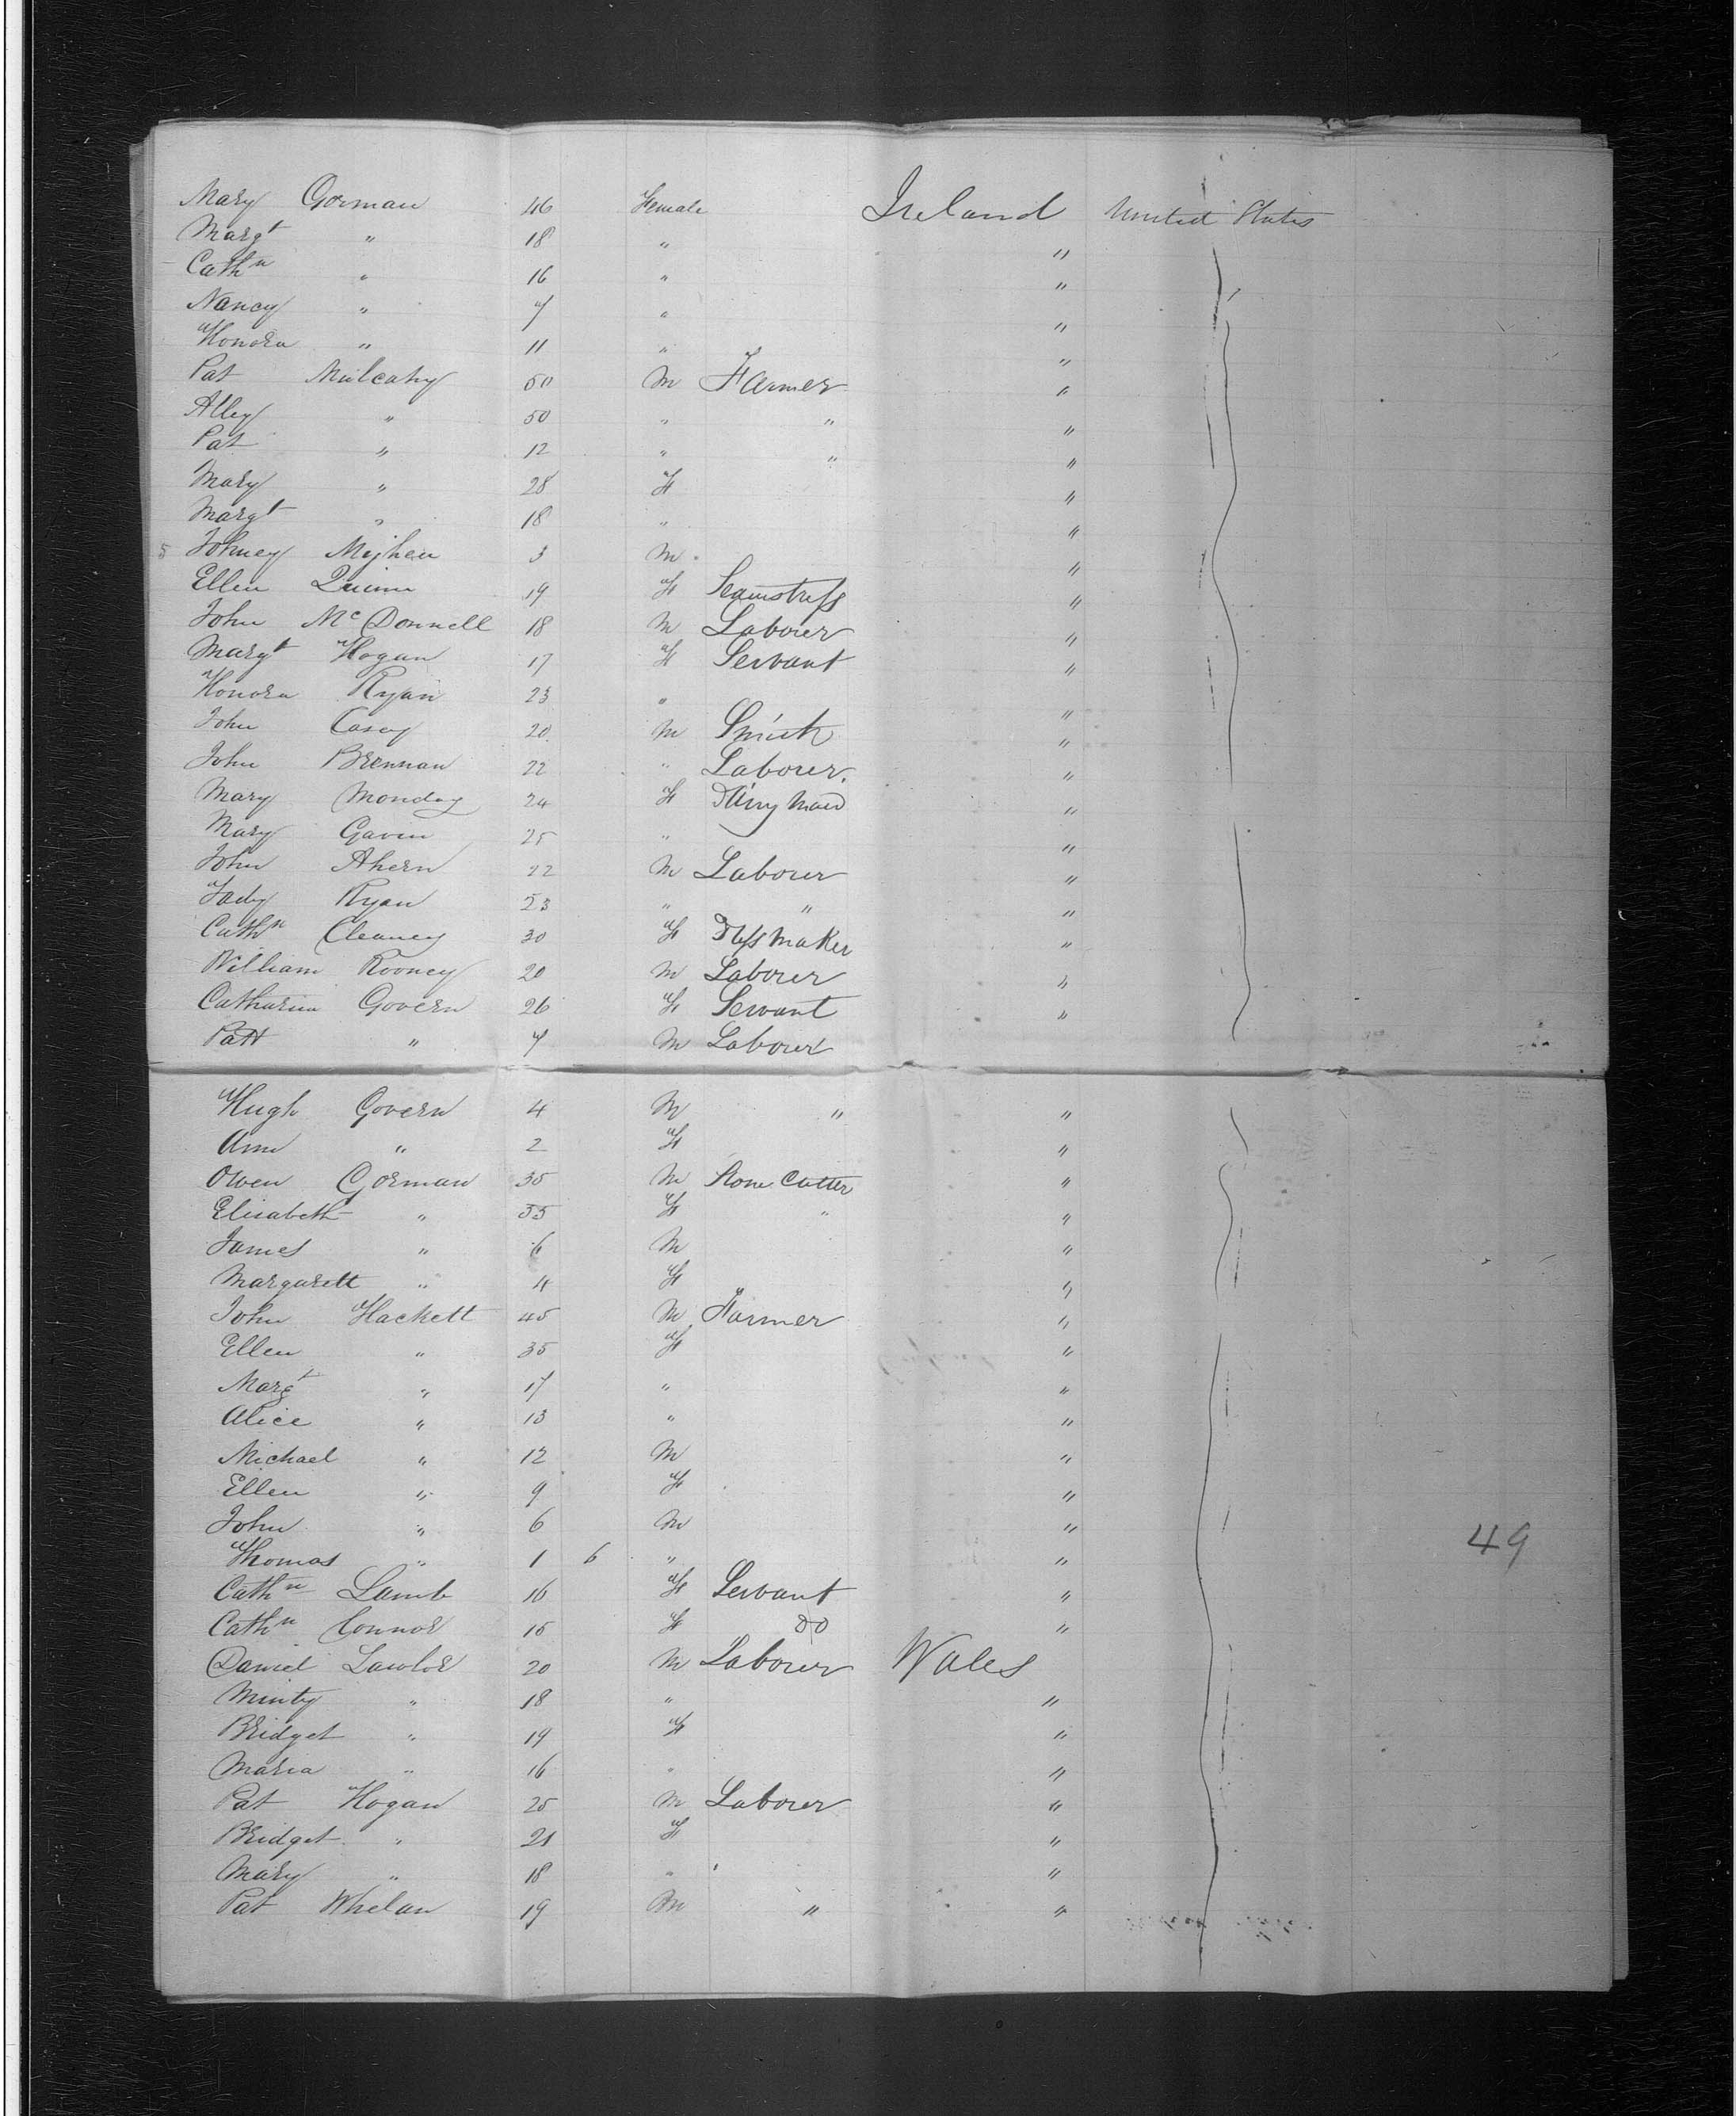 Mary Gorman 46 Female Ireland United States
Margt " 18 " "
Cathn " 16 " "
Nancy " 7 " "
Honora " 11 " "
Pat Mulcahy 50 M Farmer "
Alley " 50 " " "
Pat " 12 " " "
Mary " 28 F "
Margt " 18 " "
5 Johney 3 M "
Ellen Quinn 19 F Seamstress "
John McDonnell 18 M Laborer "
Margt Hogan 17 F Servant "
Honora Ryan 23 " "
John Casey 20 M Smith "
John Brennan 22 " Laborer "
Mary Monday 24 F Dairy Maid "
Mary Gavin 25 " "
John Ahern 22 M Laborer "
Tady Ryan 23 " " "
Cathn Cleaney 30 F Dress Maker "
William Rooney 20 M Laborer "
Catharine Govern 26 F Servant "
Patt " 7 M Laborer
Hugh Govern 4 M " "
Ann " 2 F "
Owen Gorman 35 M Stone Cutter "
Elisabeth " 35 F " "
James " 6 M "
Margarett " 4 F "
John Hackett 45 M Farmer "
Ellen " 35 F "
Margt " 17 " "
Alice " 13 " "
Michael " 12 M "
Ellen " 9 F "
John " 6 M "
49
Thomas " 1 6 " "
Cathn Lamb 16 F Servant "
Cathn Connor 15 F Do "
Daniel Lawlor 20 M Laborer Wales
Minty " 18 " "
Bridget " 19 F "
Maria " 16 " "
Pat Hogan 25 M Laborer "
Bridget " 21 F "
Mary " 18 " "
Pat Whelan 19 M " "